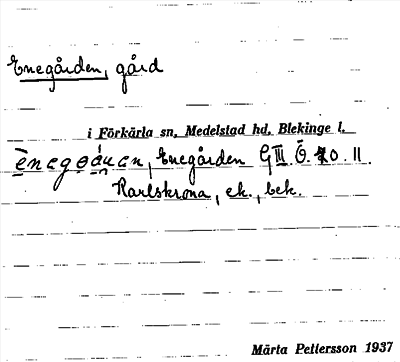 Enegården, gård
i Förkärla sn, Medelstad hd, Blekinge l.
Enegården GIII. Ö. 20. 11.
Karlskrona, ek., bek.
Märta Pettersson 1937